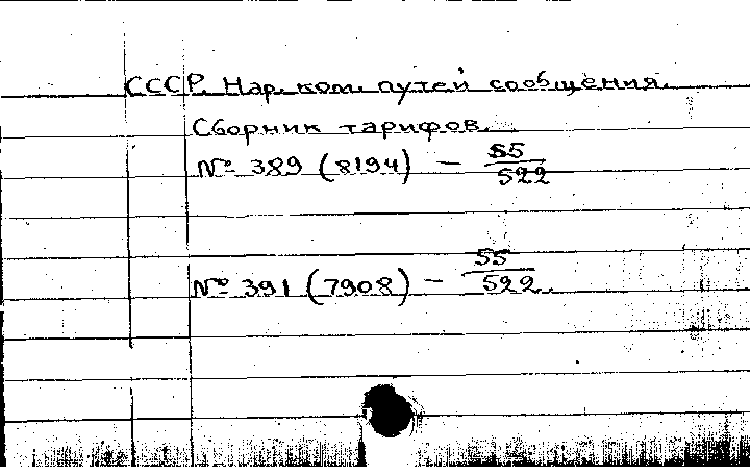 СССР. Нар. ком. путей сообщения.
Сборник тарифов.
№ 389 (8194) — 55/522
№ 391 (7908) — 55/522.